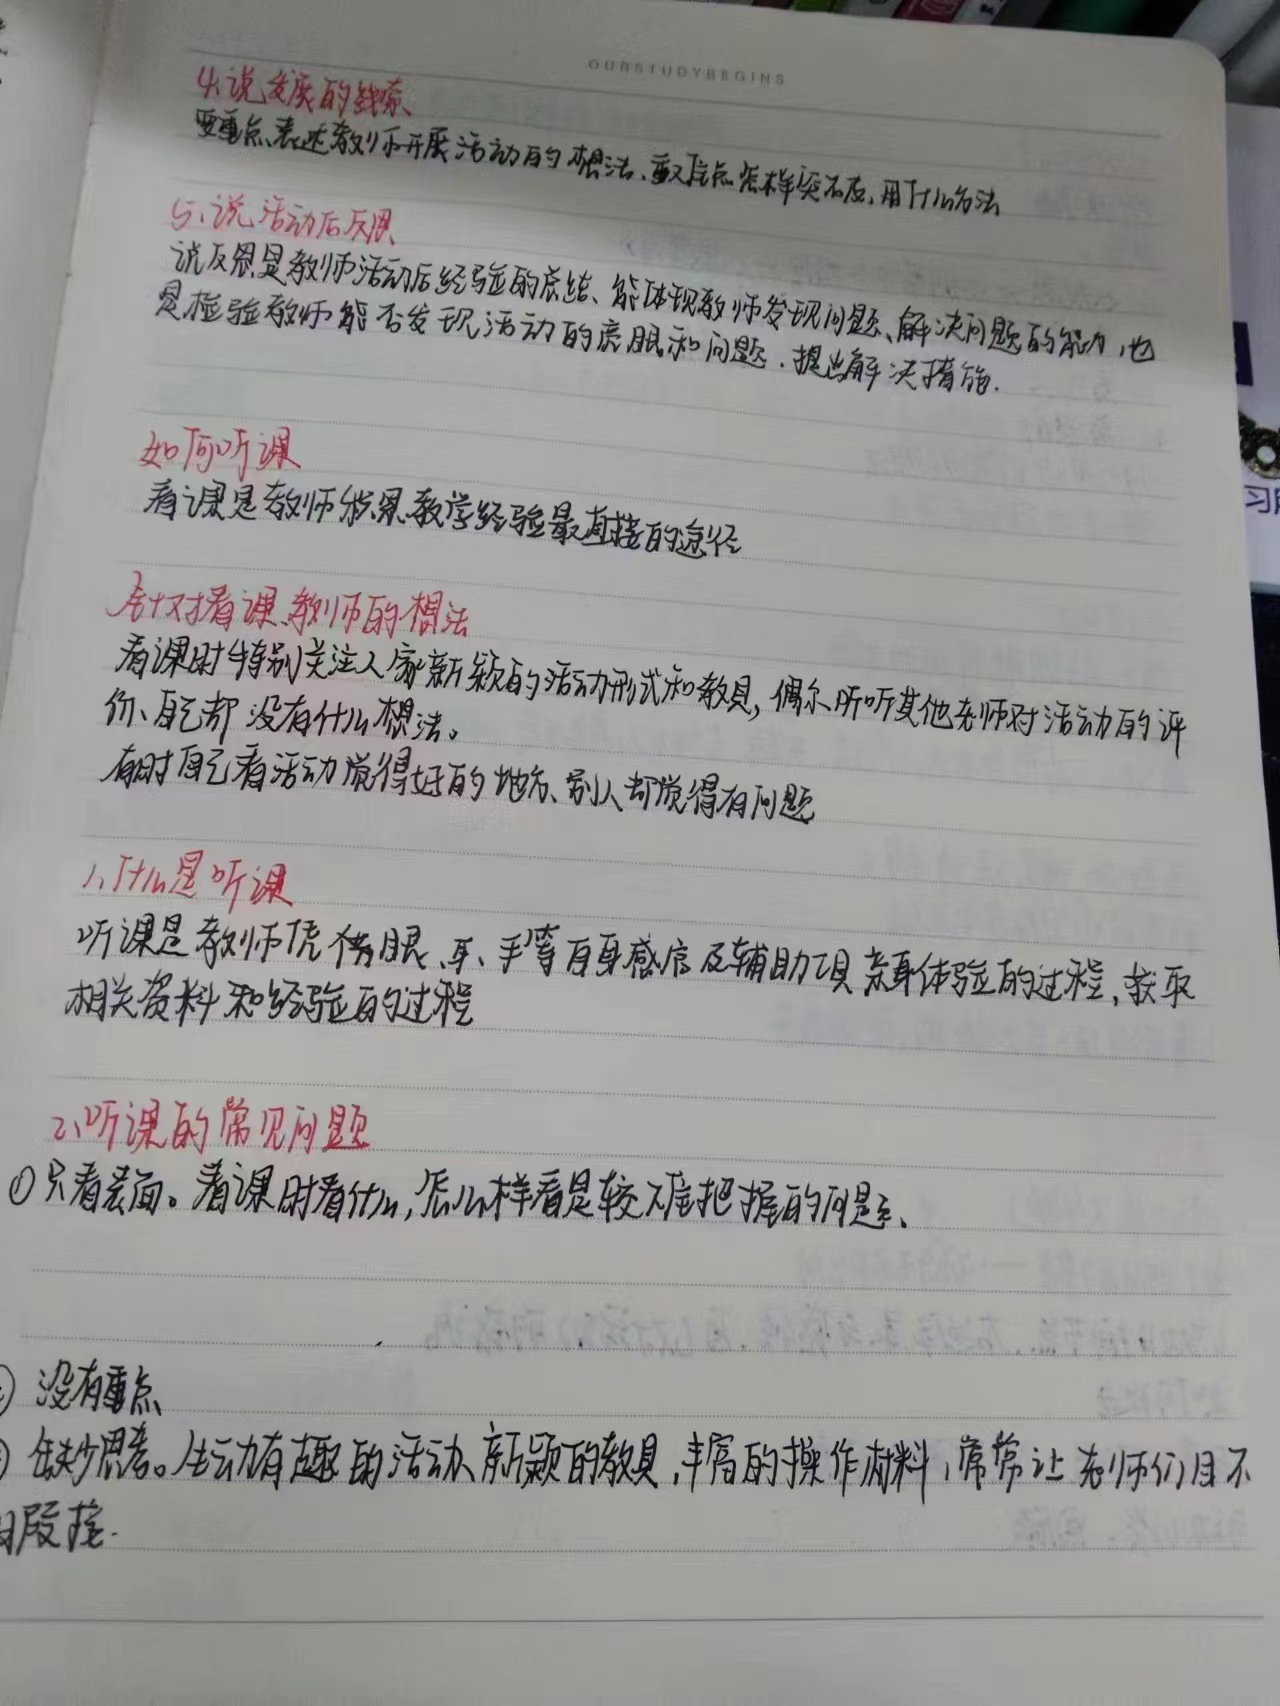 OURSTUDYBEGINS
4、说发展的线索、
要重点、表述教师开展活动的想法、重难点怎样突破,用什么方法
5、说活动后反思
说反思是教师活动后经验的总结、能体现教师发现问题、解决问题的能力,也
是检验教师能否发现活动的 和问题.提出解决措施.
如何听课
看课是教师积累教学经验最直接的途径
针对看课、教师的想法
看课时特别关注人家新颖的活动形式和教具,偶尔听听其他老师对活动的评
价、自己却没有什么想法。
有时自己看活动觉得好的地方、别人却觉得有问题
1、什么是听课
听课是教师凭借眼、耳、手等自身感官及辅助工具亲身体验的过程,获取
相关资料和经验的过程
2、听课的常见问题
①只看表面。看课时看什么,怎么样看是较难把握的问题、
② 没有重点
缺少思考。生动有趣的活动、新颖的教具,丰富的操作材料,常常让老师们目不
暇接.
习